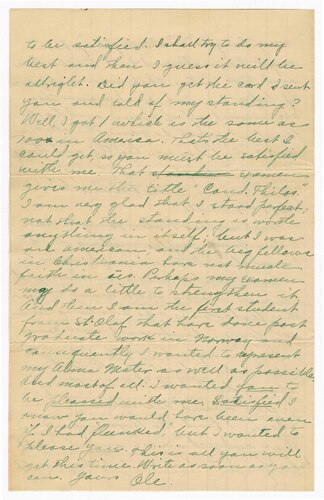 to be satisfied. I shall try to do my
best and then I guess it will be
allright. Did you get the card I sent
you and told of my standing?
Well, I got 1 which is the same as
100 in America. Thats the best I
could get, so you must be satisfied
with me. That examen
gives me the title "Cand. Philos."
I am very glad that I stood perfect.
not that the standing is worth
anything in itself; but I was
an american and the big fellows
in Christiania have not much
faith in us. Perhaps my examen
may do a little to strengthen it.
And then I am the first student
from St. Olaf that have done post
graduate work in Norway and
consequently I wanted to represent
my Alma Mater as well as possible.
And most of all I wanted you to
be pleased with me. Satisfied I
know you would have been even
if I had flunked but I wanted to
please you. This is all you will
get this time. Write as soon as you
can. Yours Ole.